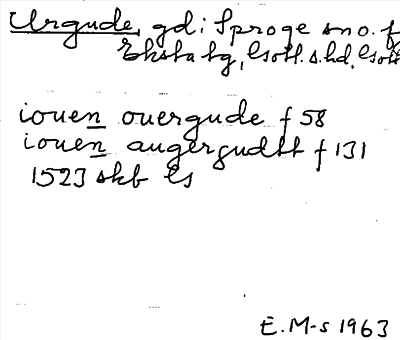 Urgude, gd i Sproge sn o. f
Eksta tg, Gotl. s. hd, Gotl
iouen ouergude f 58
iouen augergudtt f 131
1523 skb Gs
E. M-s 1963